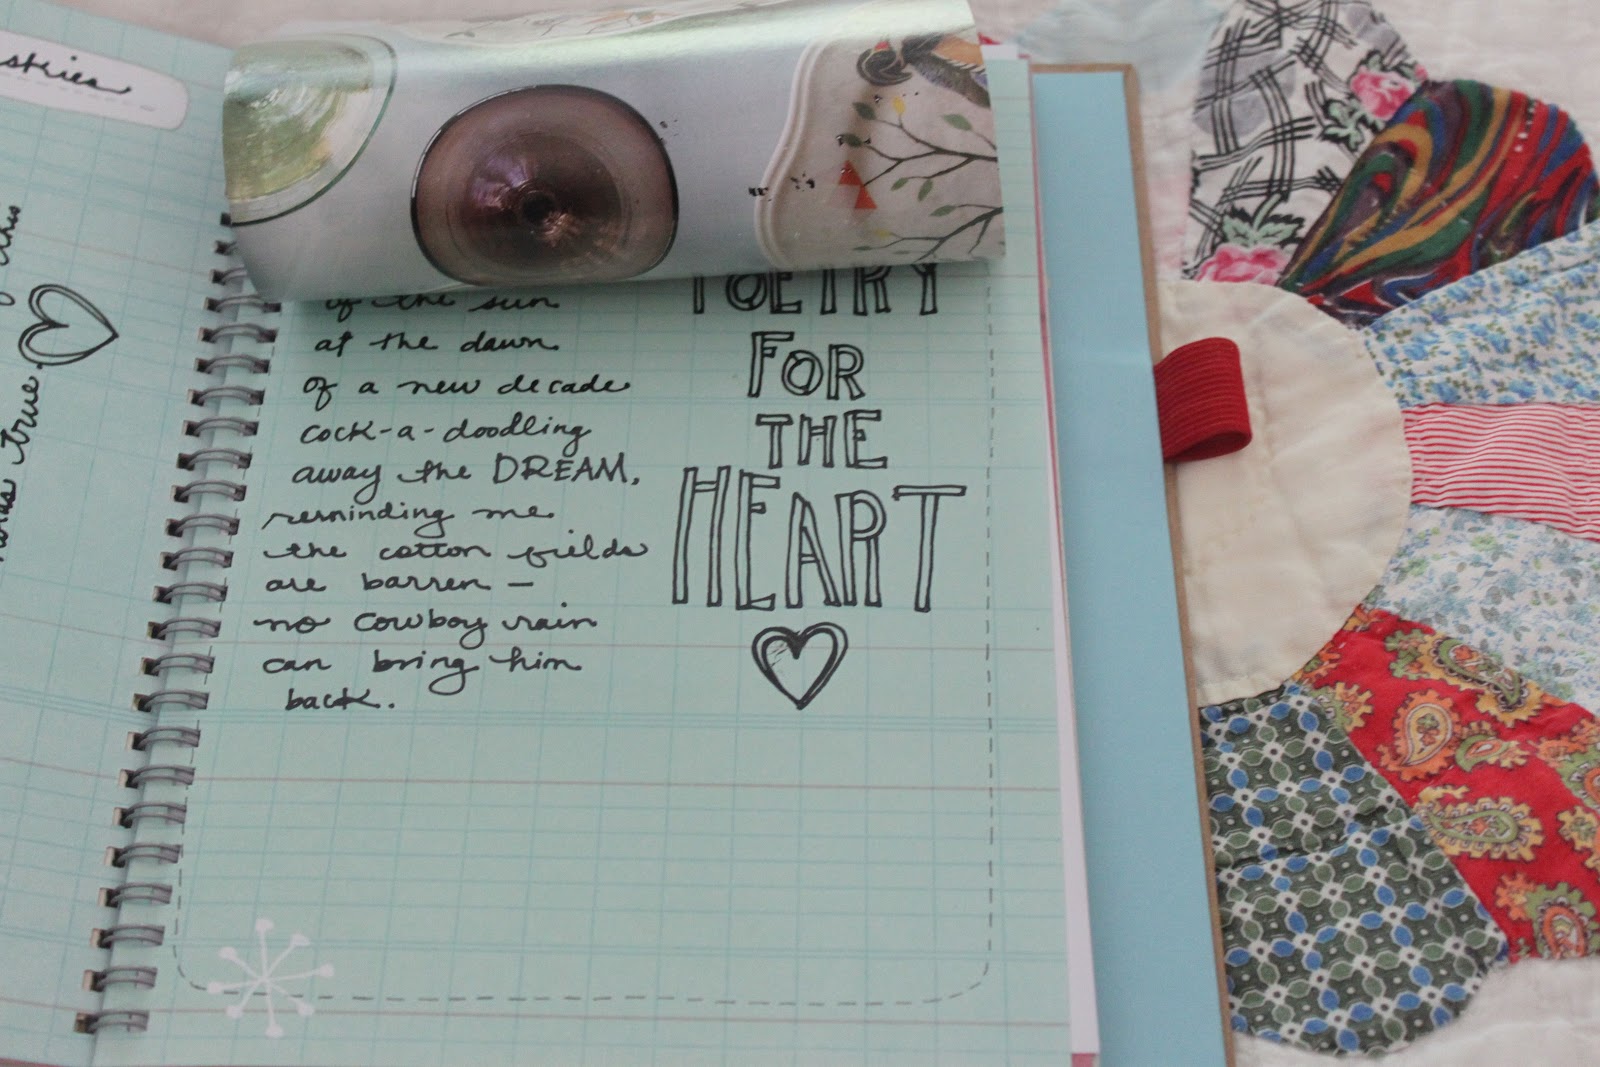 skies
this
was true.
of the sun
at the dawn
of a new decade
cock-a-doodling
away the DREAM,
reminding me
the cotton fields
are barren —
no cowboy rain
can bring him
back.
POETRY
FOR
THE
HEART